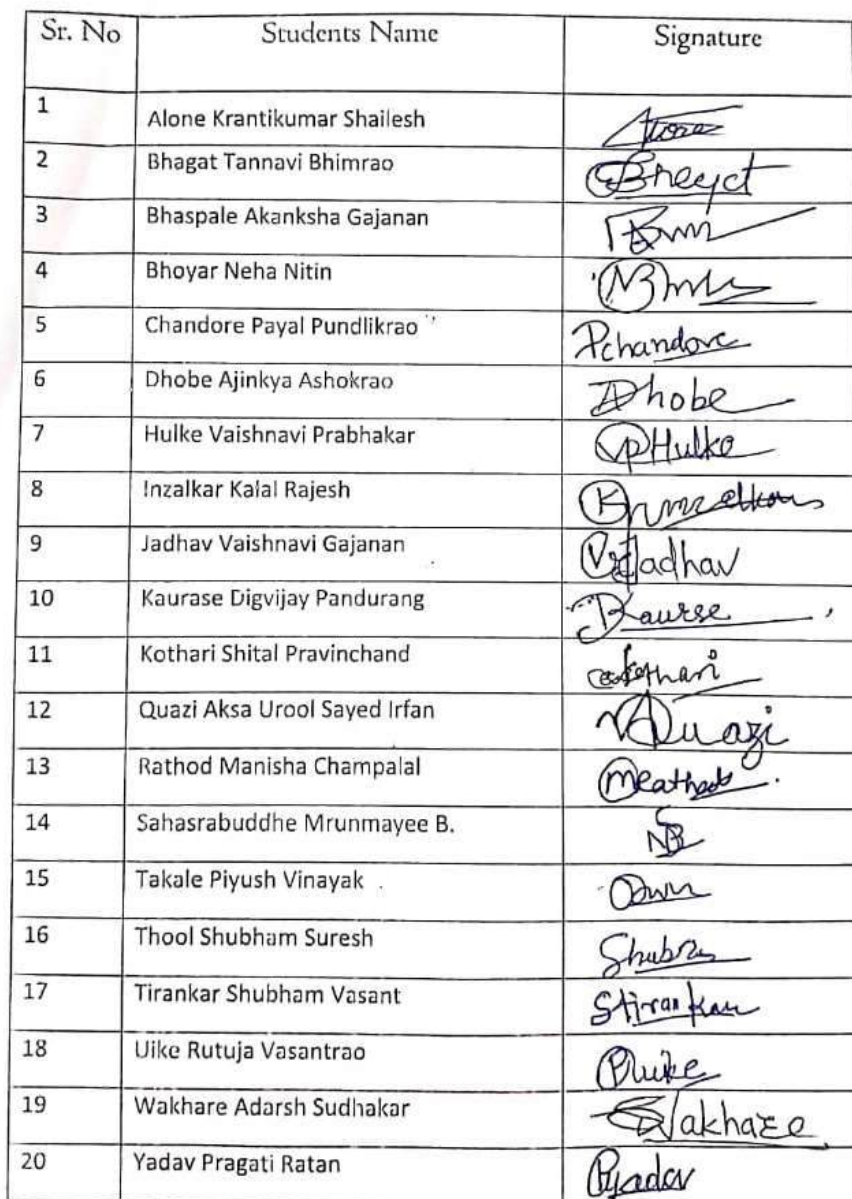 Sr. No Students Name Signature
1 Alone Krantikumar Shailesh
2 Bhagat Tannavi Bhimrao
3 Bhaspale Akanksha Gajanan
4 Bhoyar Neha Nitin
5 Chandore Payal Pundlikrao Pchandore
6 Dhobe Ajinkya Ashokrao ADhobe
7 Hulke Vaishnavi Prabhakar VPHulke
8 Inzalkar Kalal Rajesh
9 Jadhav Vaishnavi Gajanan VGJadhav
10 Kaurase Digvijay Pandurang
11 Kothari Shital Pravinchand
12 Quazi Aksa Urool Sayed Irfan
13 Rathod Manisha Champalal
14 Sahasrabuddhe Mrunmayee B.
15 Takale Piyush Vinayak
16 Thool Shubham Suresh
17 Tirankar Shubham Vasant Stirankar
18 Uike Rutuja Vasantrao
19 Wakhare Adarsh Sudhakar Wakhare
20 Yadav Pragati Ratan Pyadav